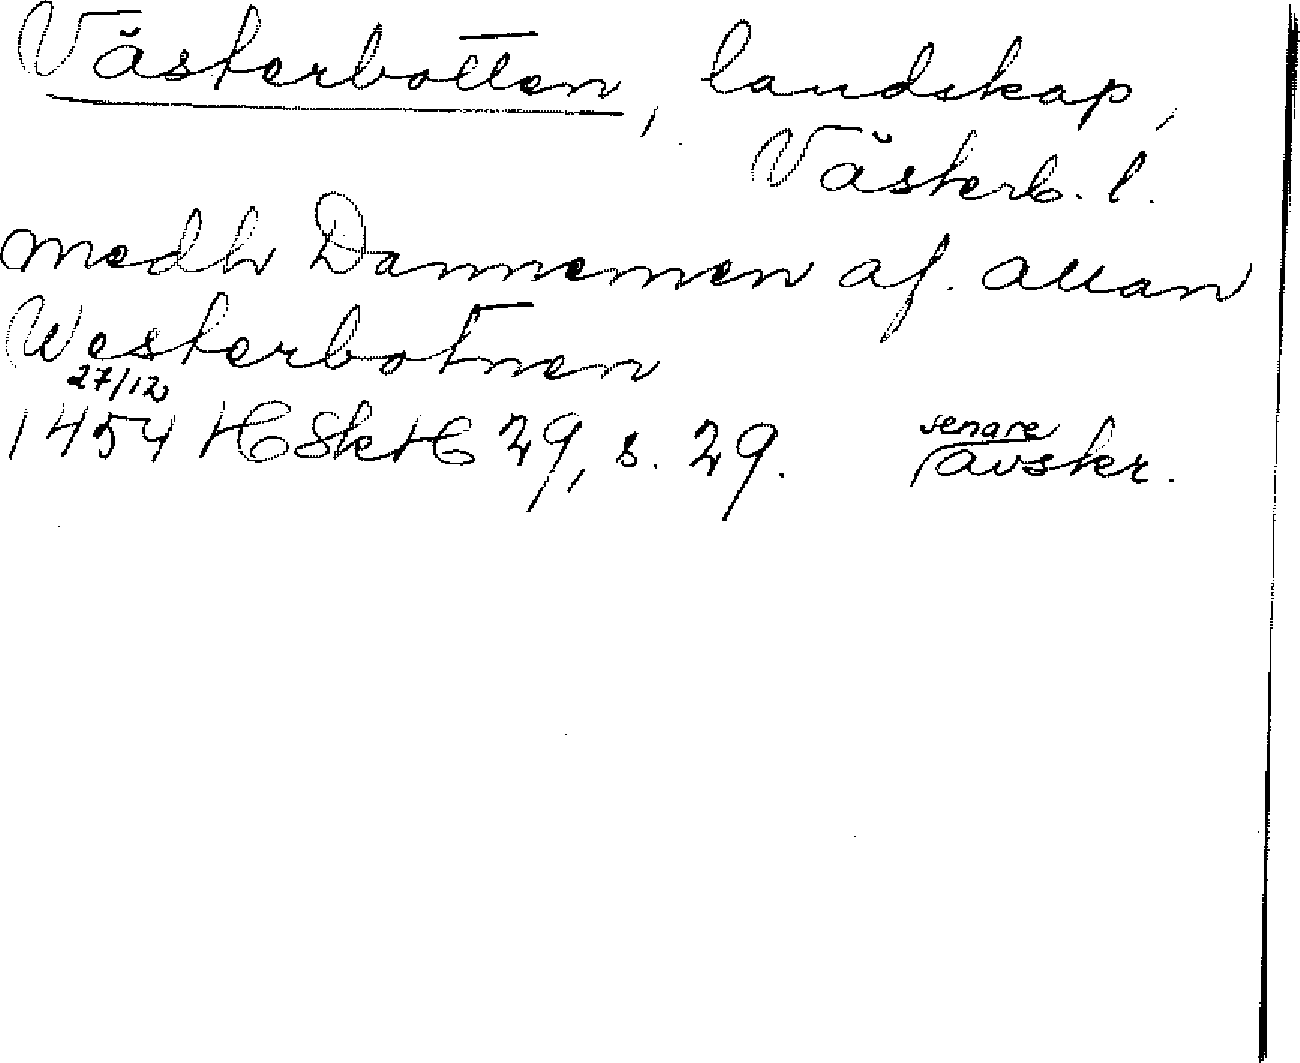 Västerbotten, landskap,
Västerb. l.
medh Dannemen af. allan
Westerbotnen
27/12
1454 HSkH 29, s. 29. senare avskr.